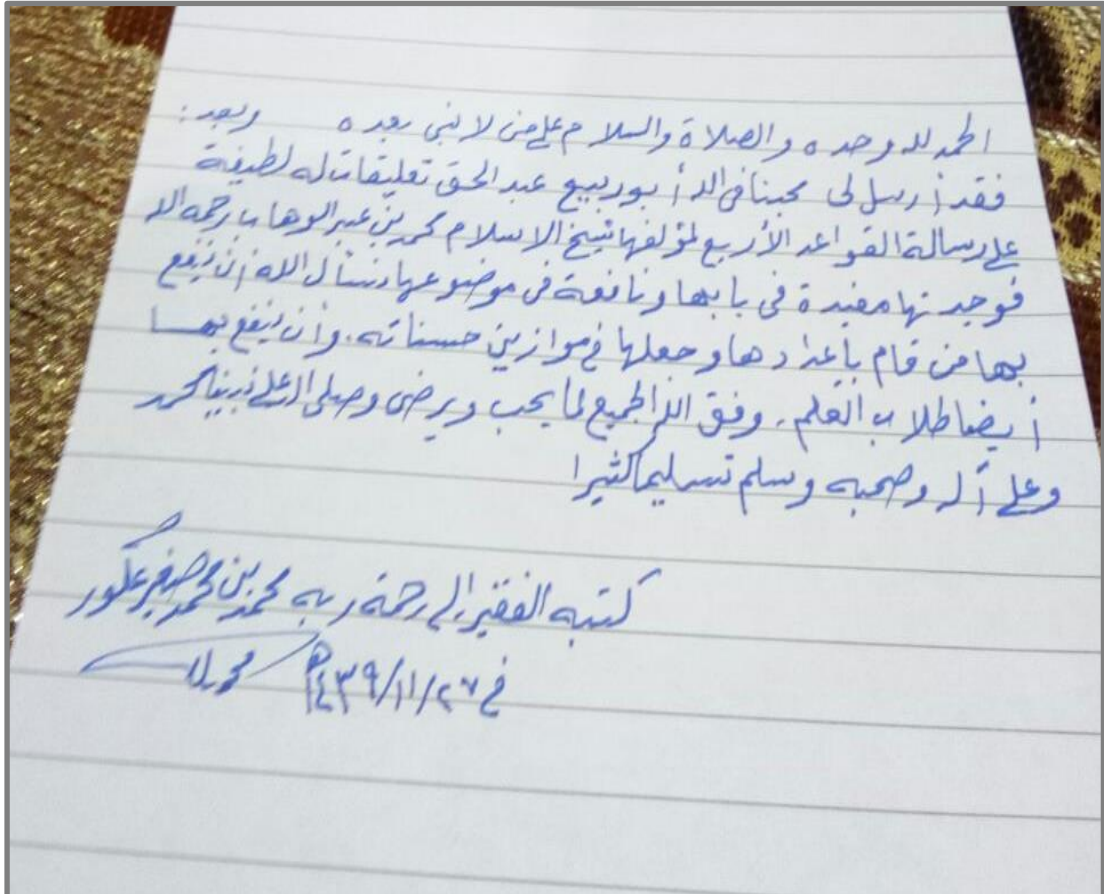 الحمد لله وحده والصلاة والسلام على من لا نبي بعده وبعد:
فقد أرسل لي محبنا في الله أبو ربيع عبد الحق تعليقات له لطيفة
على رسالة القواعد الأربع لمؤلفها شيخ الإسلام محمد بن عبد الوهاب رحمه الله
فوجدتها مفيدة في بابها ونافعة في موضوعها ونسأل الله أن ينفع
بها من قام بإعدادها وجعلها في موازين حسناته. وأن ينفع بها
أيضا طلاب العلم. وفق الله الجميع لما يحب ويرضى وصلى الله على نبينا محمد
وعلى آله وصحبه وسلم تسليما كثيرا
كتبه الفقير إلى رحمة ربه محمد بن محمد صغير عكور
في ٢٧/١١/١٤٣٩هـ